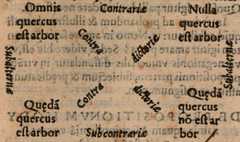 Omnis
quercus
est arbor
Contrariæ
Nulla
quercus
est arbor
Subalternæ
Contra
dictoriæ
Subalternæ
Contra
dictoriæ
Quędã
quercus
est arbor
Subcontrariæ
Quędã
quercus
nõ est ar
bor